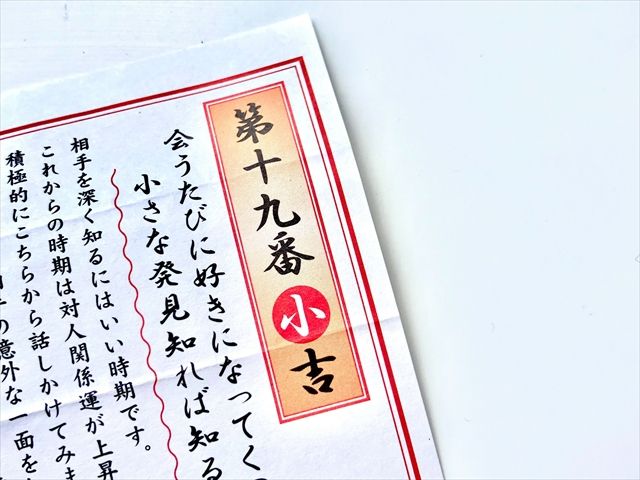 第十九番 小吉
会うたびに好きになってく
小さな発見知れば知る
相手を深く知るにはいい時期です。
これからの時期は対人関係運が上昇
積極的にこちらから話しかけてみま
の意外な一面を